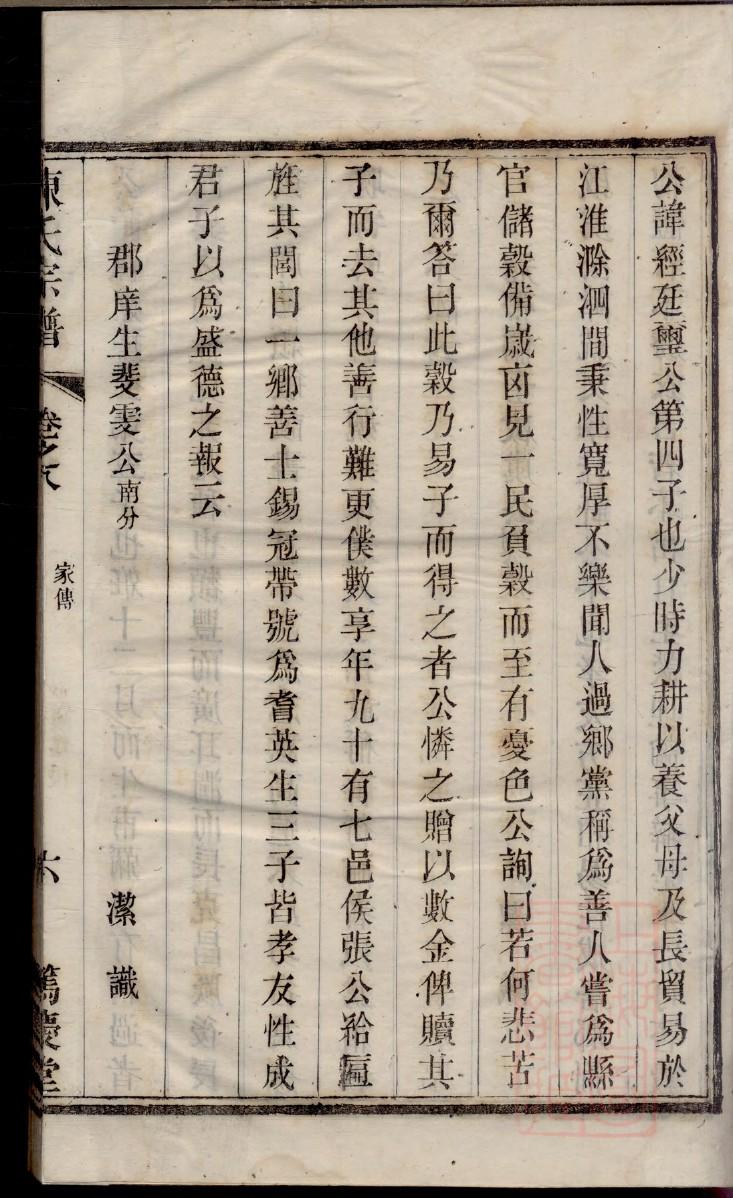 公諱經廷璽公第四子也少時力耕以養父母及長貿易於
江淮滁泗間秉性寬厚不樂聞人過鄉黨稱爲善人嘗爲縣
官儲穀備歲凶見一民負穀而至有憂色公詢曰若何悲苦
乃爾答曰此穀乃易子而得之者公憐之贈以數金俾贖其
子而去其他善行難更僕數享年九十有七邑侯張公給匾
旌其閭曰一鄉善士錫冠帶號爲耆英生三子皆孝友性成
君子以爲盛德之報云
郡庠生斐雯公南分 潔識
陳氏宗譜 卷之八 家傳 六 篤慶堂